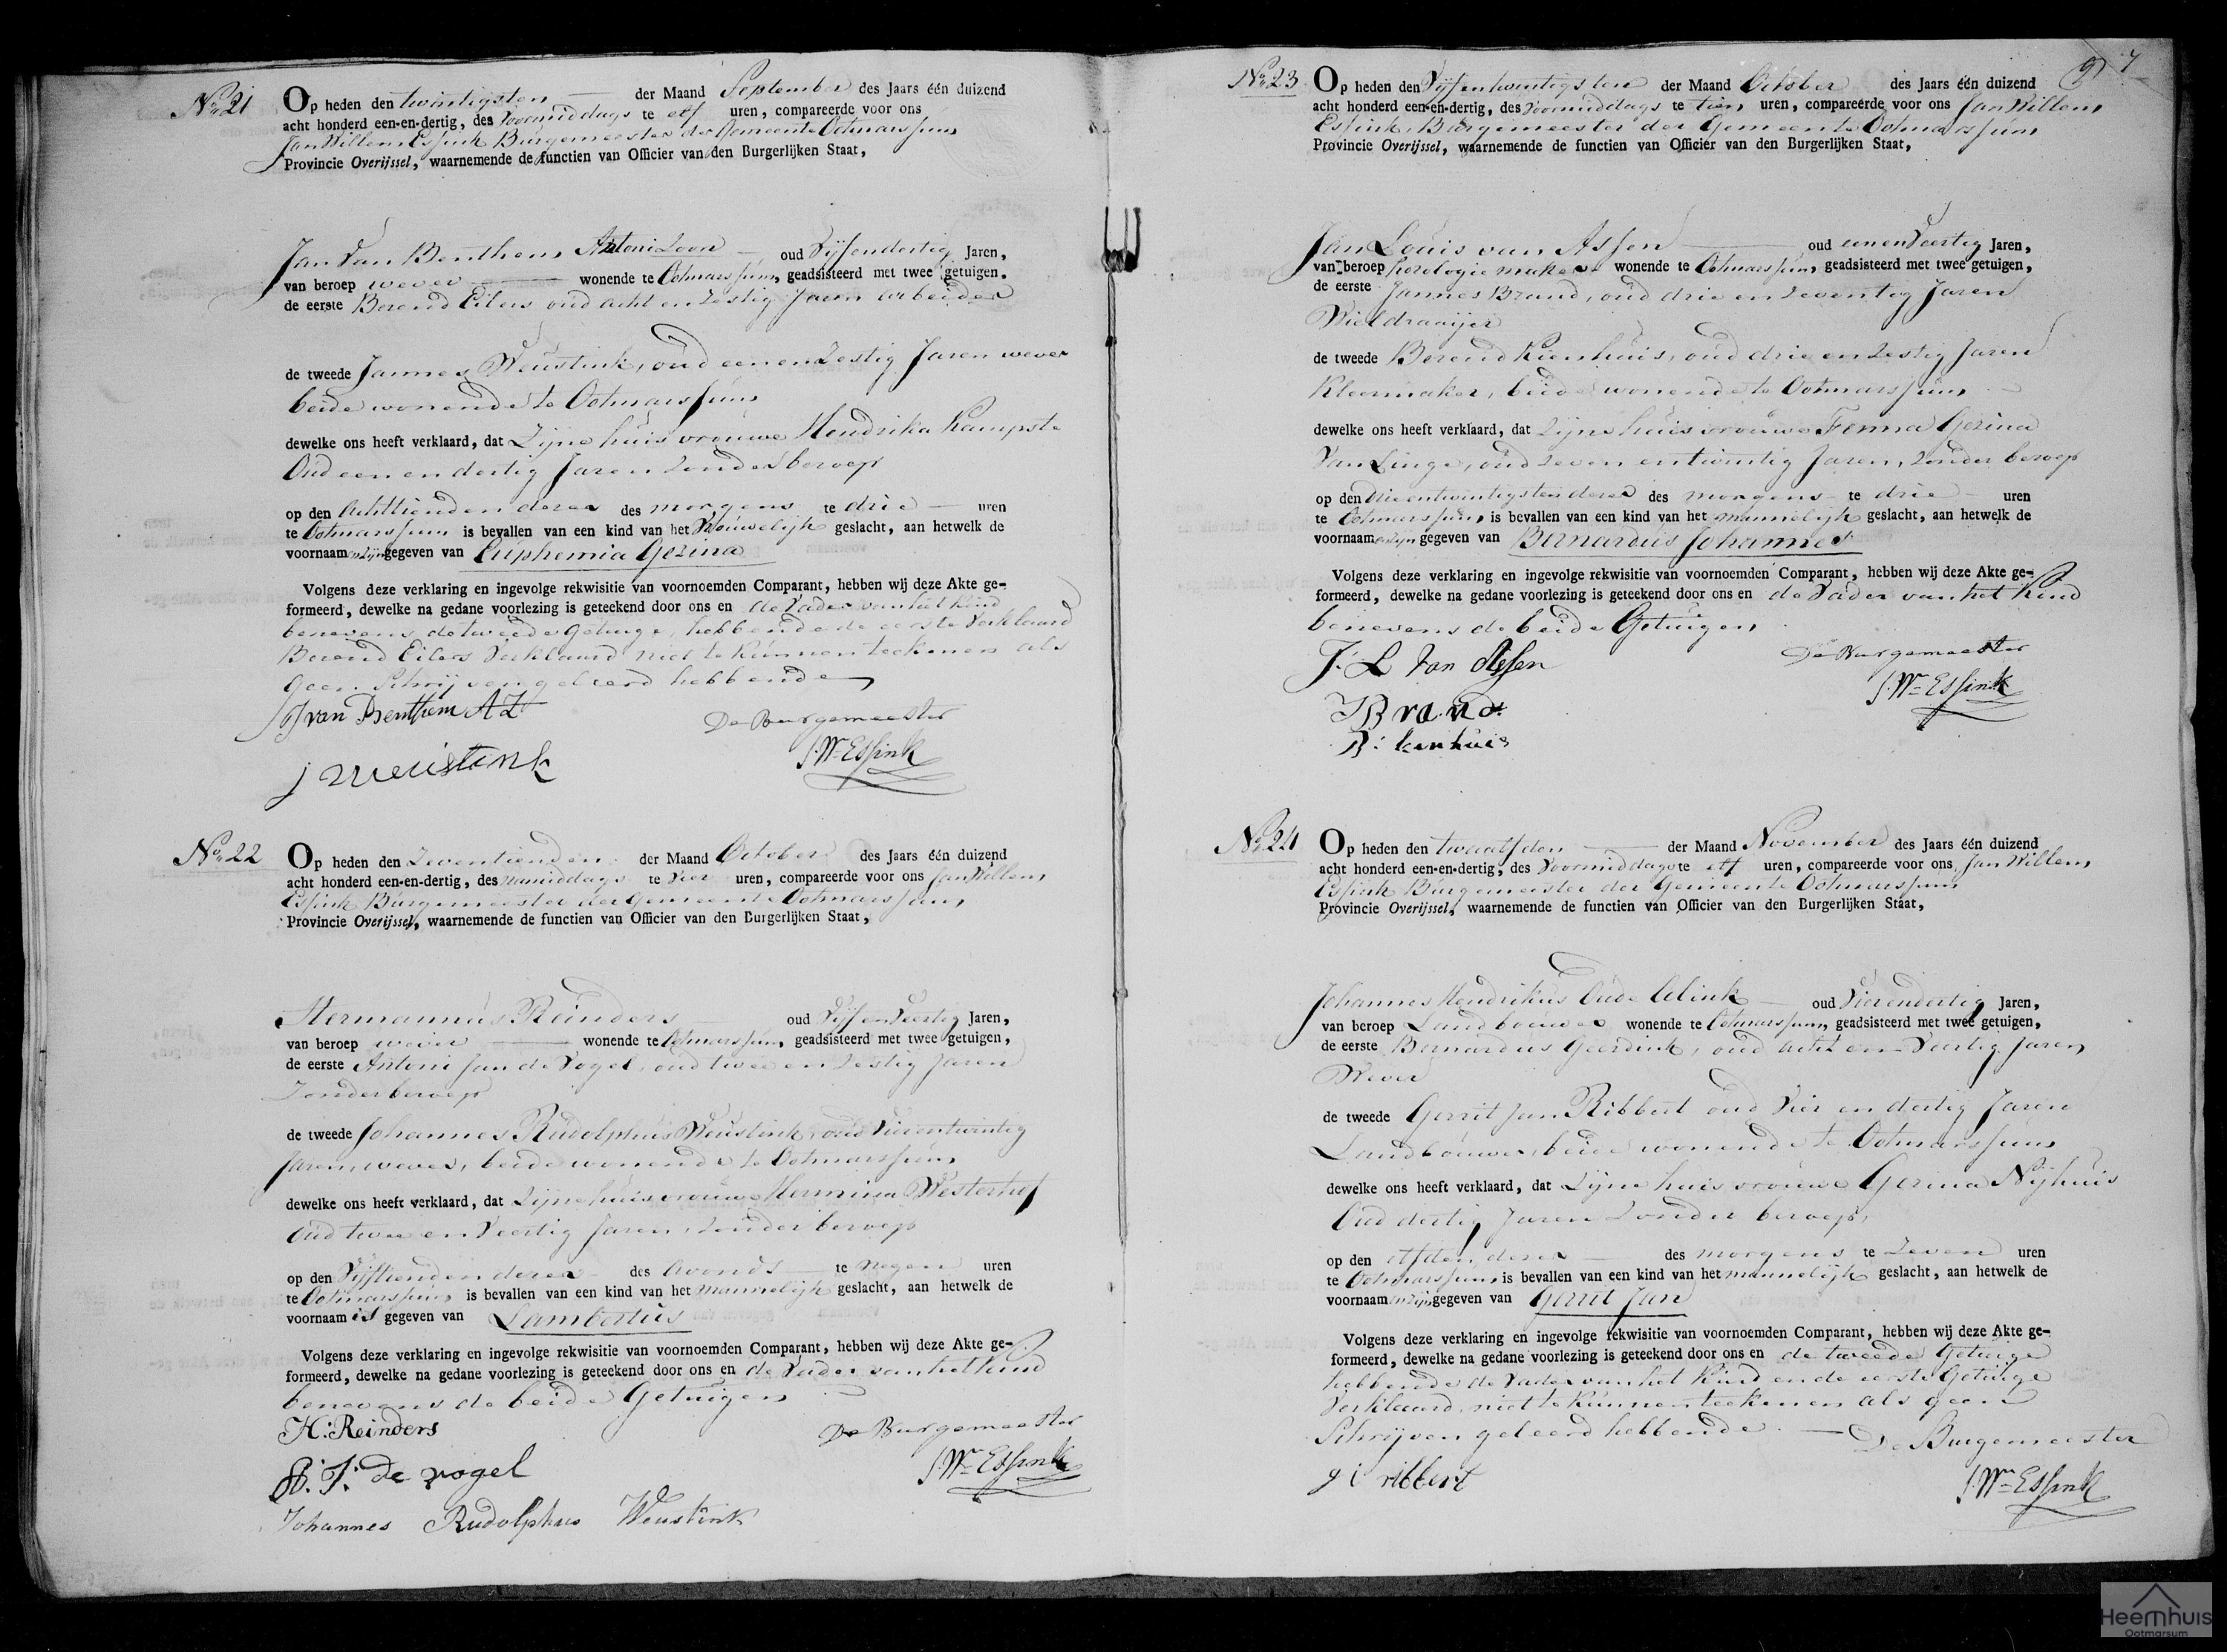 No. 21
Op heden den twintigsten der Maand September des Jaars één duizend
acht honderd een-en-dertig, des voormiddags te elf uren, compareerde voor ons
Jan Willem Essink Burgemeester der Gemeente Ootmarssum
Provincie Overijssel, waarnemende de functien van Officier van den Burgerlijken Staat,
Jan Van Benthem Antoni Zoon oud Vijfendertig Jaren,
van beroep wever wonende te Ootmarssum, geadsisteerd met twee getuigen.
de eerste Berend Eilers oud acht en Zestig Jaren arbeider
de tweede Jannes Weustink, oud een en Zestig Jaren wever
beide wonende te Ootmarssum
dewelke ons heeft verklaard, dat Zijne huisvrouwe Hendrika Kampste
Oud een en dertig Jaren Zonder beroep
op den Achttienden dezer des morgens te drie uren
te Ootmarssum is bevallen van een kind van het Vrouwelijk geslacht, aan hetwelk de
voornaamen zijn gegeven van Euphemia Gezina
Volgens deze verklaring en ingevolge rekwisitie van voornoemden Comparant, hebben wij deze Akte ge-
formeerd, dewelke na gedane voorlezing is geteekend door ons en de Vader van het Kind
benevens de tweede Getuige, hebbende de eerste Verklaard
Berend Eilers Verklaard niet te kunnen teekenen als
Geen Schrijven geleerd hebbende
J van Benthem A Z
De Burgemeester
J. Wm Essink
j weustink
No. 22
Op heden den Zeventienden der Maand October des Jaars één duizend
acht honderd een-en-dertig, des namiddags te Vier uren, compareerde voor ons Jan Willem
Essink Burgemeester der Gemeente Ootmarssum
Provincie Overijssel, waarnemende de functien van Officier van den Burgerlijken Staat,
Hermannus Reinders oud Vijf en Veertig Jaren,
van beroep wever wonende te Ootmarssum, geadsisteerd met twee getuigen,
de eerste Antoni Jan de Vogel, oud twee en Zestig Jaren
Zonder beroep
de tweede Johannes Rudolphus Weustink, oud Vier en twintig
Jaren, wever, beide wonende te Ootmarssum
dewelke ons heeft verklaard, dat Zijne huisvrouwe Hermina Westerhof
Oud twee en Veertig Jaren, Zonder beroep
op den Vijftienden dezer des Avonds te Negen uren
te Ootmarssum is bevallen van een kind van het mannelijk geslacht, aan hetwelk de
voornaam is gegeven van Lambertus
Volgens deze verklaring en ingevolge rekwisitie van voornoemden Comparant, hebben wij deze Akte ge-
formeerd, dewelke na gedane voorlezing is geteekend door ons en de Vader van het Kind
benevens de beide Getuigen
H: Reinders
De Burgemeester
J. Wm Essink
J: de vogel
Johannes Rudolphus Weustink
7
No. 23
Op heden den Vijfentwintigsten der Maand October des Jaars één duizend
acht honderd een-en-dertig, des Voormiddags te tien uren, compareerde voor ons Jan Willem
Essink, Burgemeester der Gemeente Ootmarssum
Provincie Overijssel, waarnemende de functien van Officier van den Burgerlijken Staat,
Jan Louis van Assen oud eenenVeertig Jaren,
van beroep horologiemaker wonende te Ootmarssum, geadsisteerd met twee getuigen,
de eerste Jannes Brand, oud drie en Zeventig Jaren
Wieldraaijer
de tweede Berend Kienhuis, oud drie en Zestig Jaren
Kleermaker, beide wonende te Ootmarssum
dewelke ons heeft verklaard, dat Zijne huisvrouwe Fenna Gezina
Van Linge, oud Zeven en twintig Jaren, Zonder beroep
op den drieentwintigsten dezer des morgens te drie uren
te Ootmarssum is bevallen van een kind van het mannelijk geslacht, aan hetwelk de
voornaamen zijn gegeven van Bernardus Johannes
Volgens deze verklaring en ingevolge rekwisitie van voornoemden Comparant, hebben wij deze Akte ge-
formeerd, dewelke na gedane voorlezing is geteekend door ons en de Vader van het Kind
benevens de beide Getuigen
J: L Van Assen
De Burgemeester
J. Wm Essink
J Brand
B: kienhuis
No. 24
Op heden den twaalfden der Maand November des Jaars één duizend
acht honderd een-en-dertig, des Voormiddags te elf uren, compareerde voor ons Jan Willem
Essink Burgemeester der Gemeente Ootmarssum
Provincie Overijssel, waarnemende de functien van Officier van den Burgerlijken Staat,
Johannes Hendrikus Oude Elink oud Vierendertig Jaren,
van beroep Landbouwer wonende te Ootmarssum, geadsisteerd met twee getuigen,
de eerste Bernardus Geerdink, oud acht en Veertig Jaren
Wever
de tweede Gerrit Jan Ribbert oud Vier en dertig Jaren
Landbouwer, beide wonende te Ootmarssum
dewelke ons heeft verklaard, dat Zijne huisvrouwe Gezina Nijhuis
Oud dertig Jaren Zonder beroep,
op den elfden dezer des morgens te Zeven uren
te Ootmarssum, is bevallen van een kind van het mannelijk geslacht, aan hetwelk de
voornaamen zijn gegeven van Gerrit Jan
Volgens deze verklaring en ingevolge rekwisitie van voornoemden Comparant, hebben wij deze Akte ge-
formeerd, dewelke na gedane voorlezing is geteekend door ons en de tweede Getuige
hebbende de Vader van het Kind en de eerste Getuige
Verklaard, niet te kunnen teekenen als geen
Schrijven geleerd hebbende.
De Burgemeester
g i ribbert
J. Wm Essink
Heemhuis
Ootmarsum